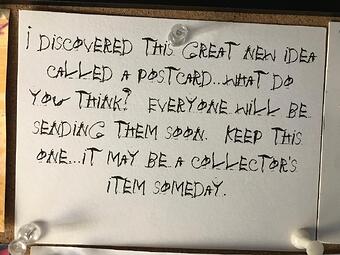 I DISCOVERED THIS GREAT NEW IDEA
CALLED A POSTCARD...WHAT DO
YOU THINK? EVERYONE WILL BE
SENDING THEM SOON. KEEP THIS
ONE...IT MAY BE A COLLECTOR'S
ITEM SOMEDAY.